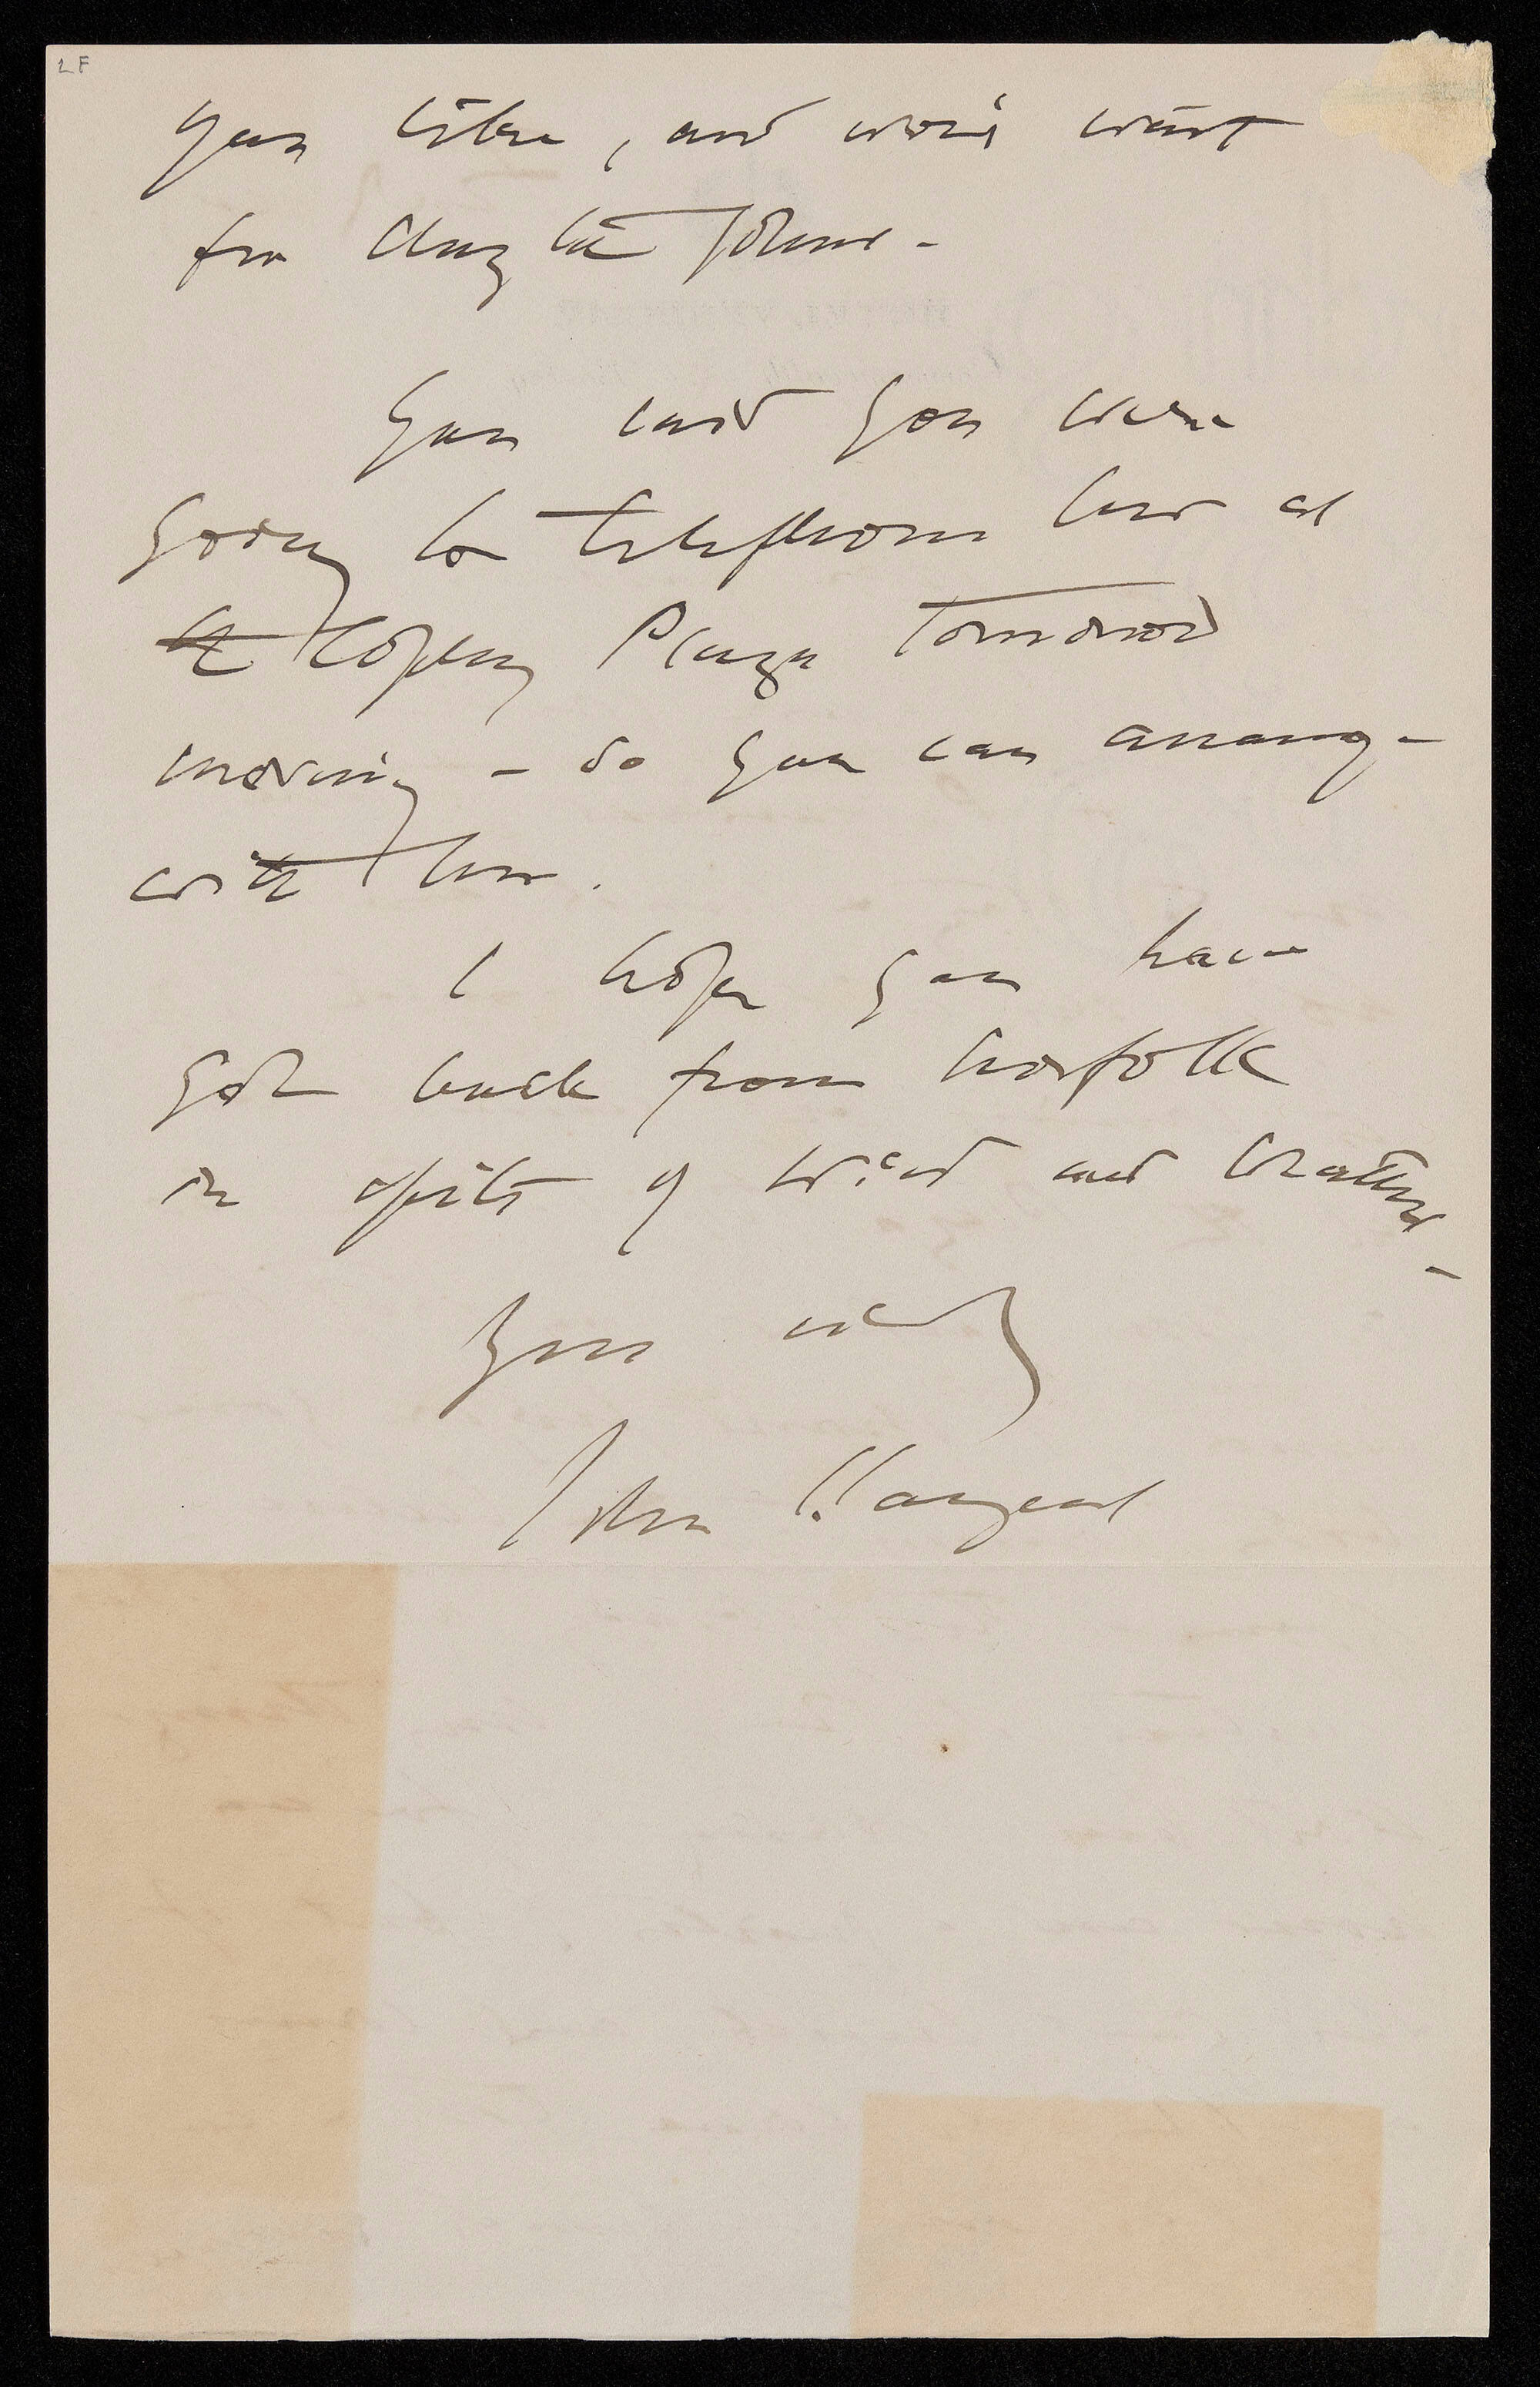 LF
you like, and won't want
for daylight
You said you were
going to telephone her at
the Copley Plaza tomorrow
morning - so you can arrange
with her.
I hope you have
got back from Norfolk
in spite of wind and weather -
Yours
John S. Sargent